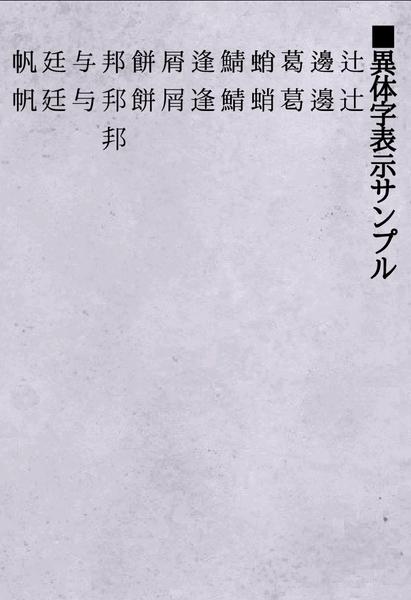 ■異体字表示サンプル
辻辻
邊邊
葛葛
蛸蛸
鯖鯖
逢逢
屑屑
餅餅
邦邦邦
与与
廷廷
帆帆